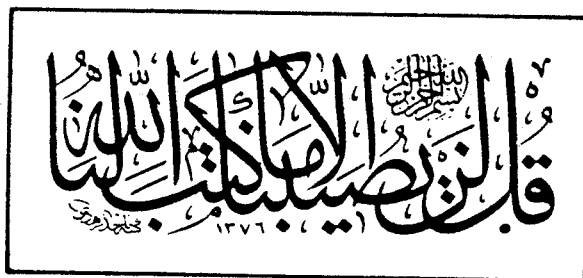 بسم الله الرحمن الرحيم
قل لن يصيبنا الا ما كتب الله لنا
١٣٧٦